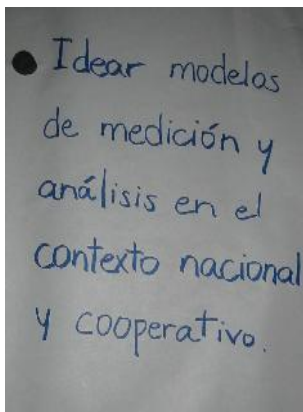 • Idear modelos
de medición y
análisis en el
contexto nacional
y cooperativo.